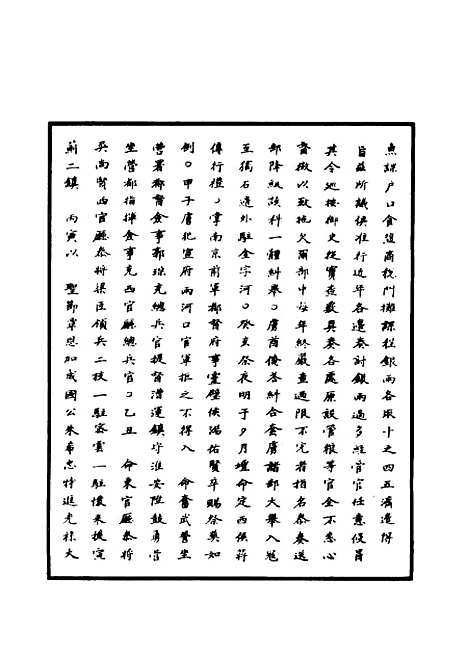 點課戶口食鹽商稅門攤課程銀兩各限十之四五濟邊得
旨茲所議俱准行近年各邊奏討銀兩過多經官官任意侵冐
其令巡撫御史從實查數具奏各處原設管糧等官全不悉心
督徵以致拖欠爾部中每年終嚴查過限不完者指名叅奏送
部降級該科一體糾舉○虜酋俺荅糾合套虜諸部大舉入寇
至獨石邊外駐金字河○癸亥祭夜明于夕月壇命定西侯蔣
傅行禮○掌南京前軍都督府事靈壁侯湯佑賢卒賜祭塟如
例○甲子虜犯宣府兩河口官軍拒之不得入 命奮武營坐
營署都督僉事郭琮充總兵官提督漕運鎮守淮安陞鼓勇營
坐營都指揮僉事充西官廳總兵官○乙丑 命東官廳叅將
吳尚賢西官廳叅將梁臣領兵二枝一駐密雲一駐懷來援宣
薊二鎮 丙寅以 聖節覃恩加成國公朱希忠特進光祿大